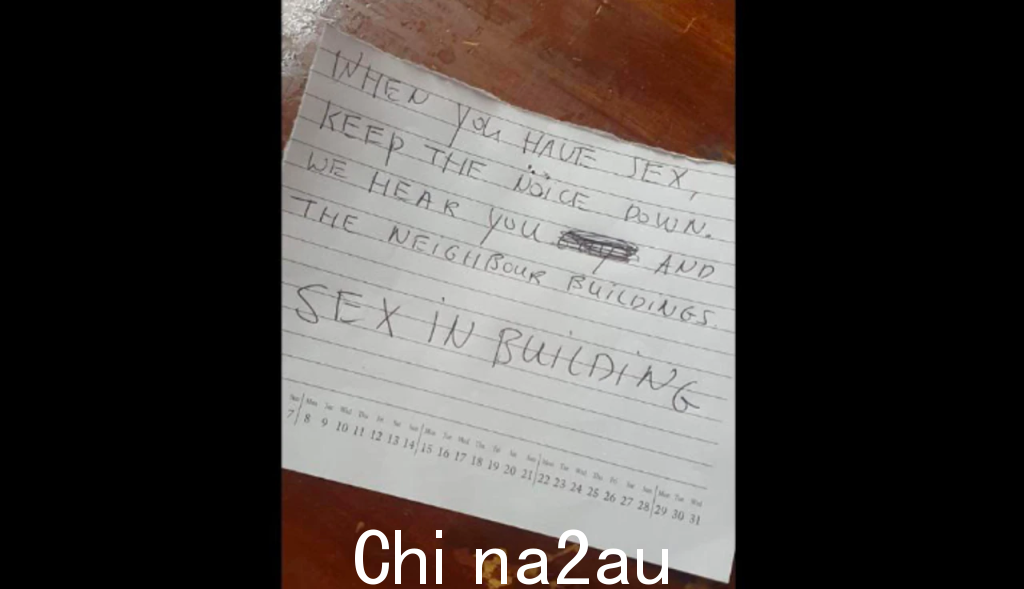 WHEN you HAVE SEX,
KEEP THE NOICE DOWN.
WE HEAR you AND
THE NEIGHBOUR BUILDINGS.
SEX iN BUiLDiNG
7 8 9 10 11 12 13 14 15 16 17 18 19 20 21 22 23 24 25 26 27 28 29 30 31
China2au